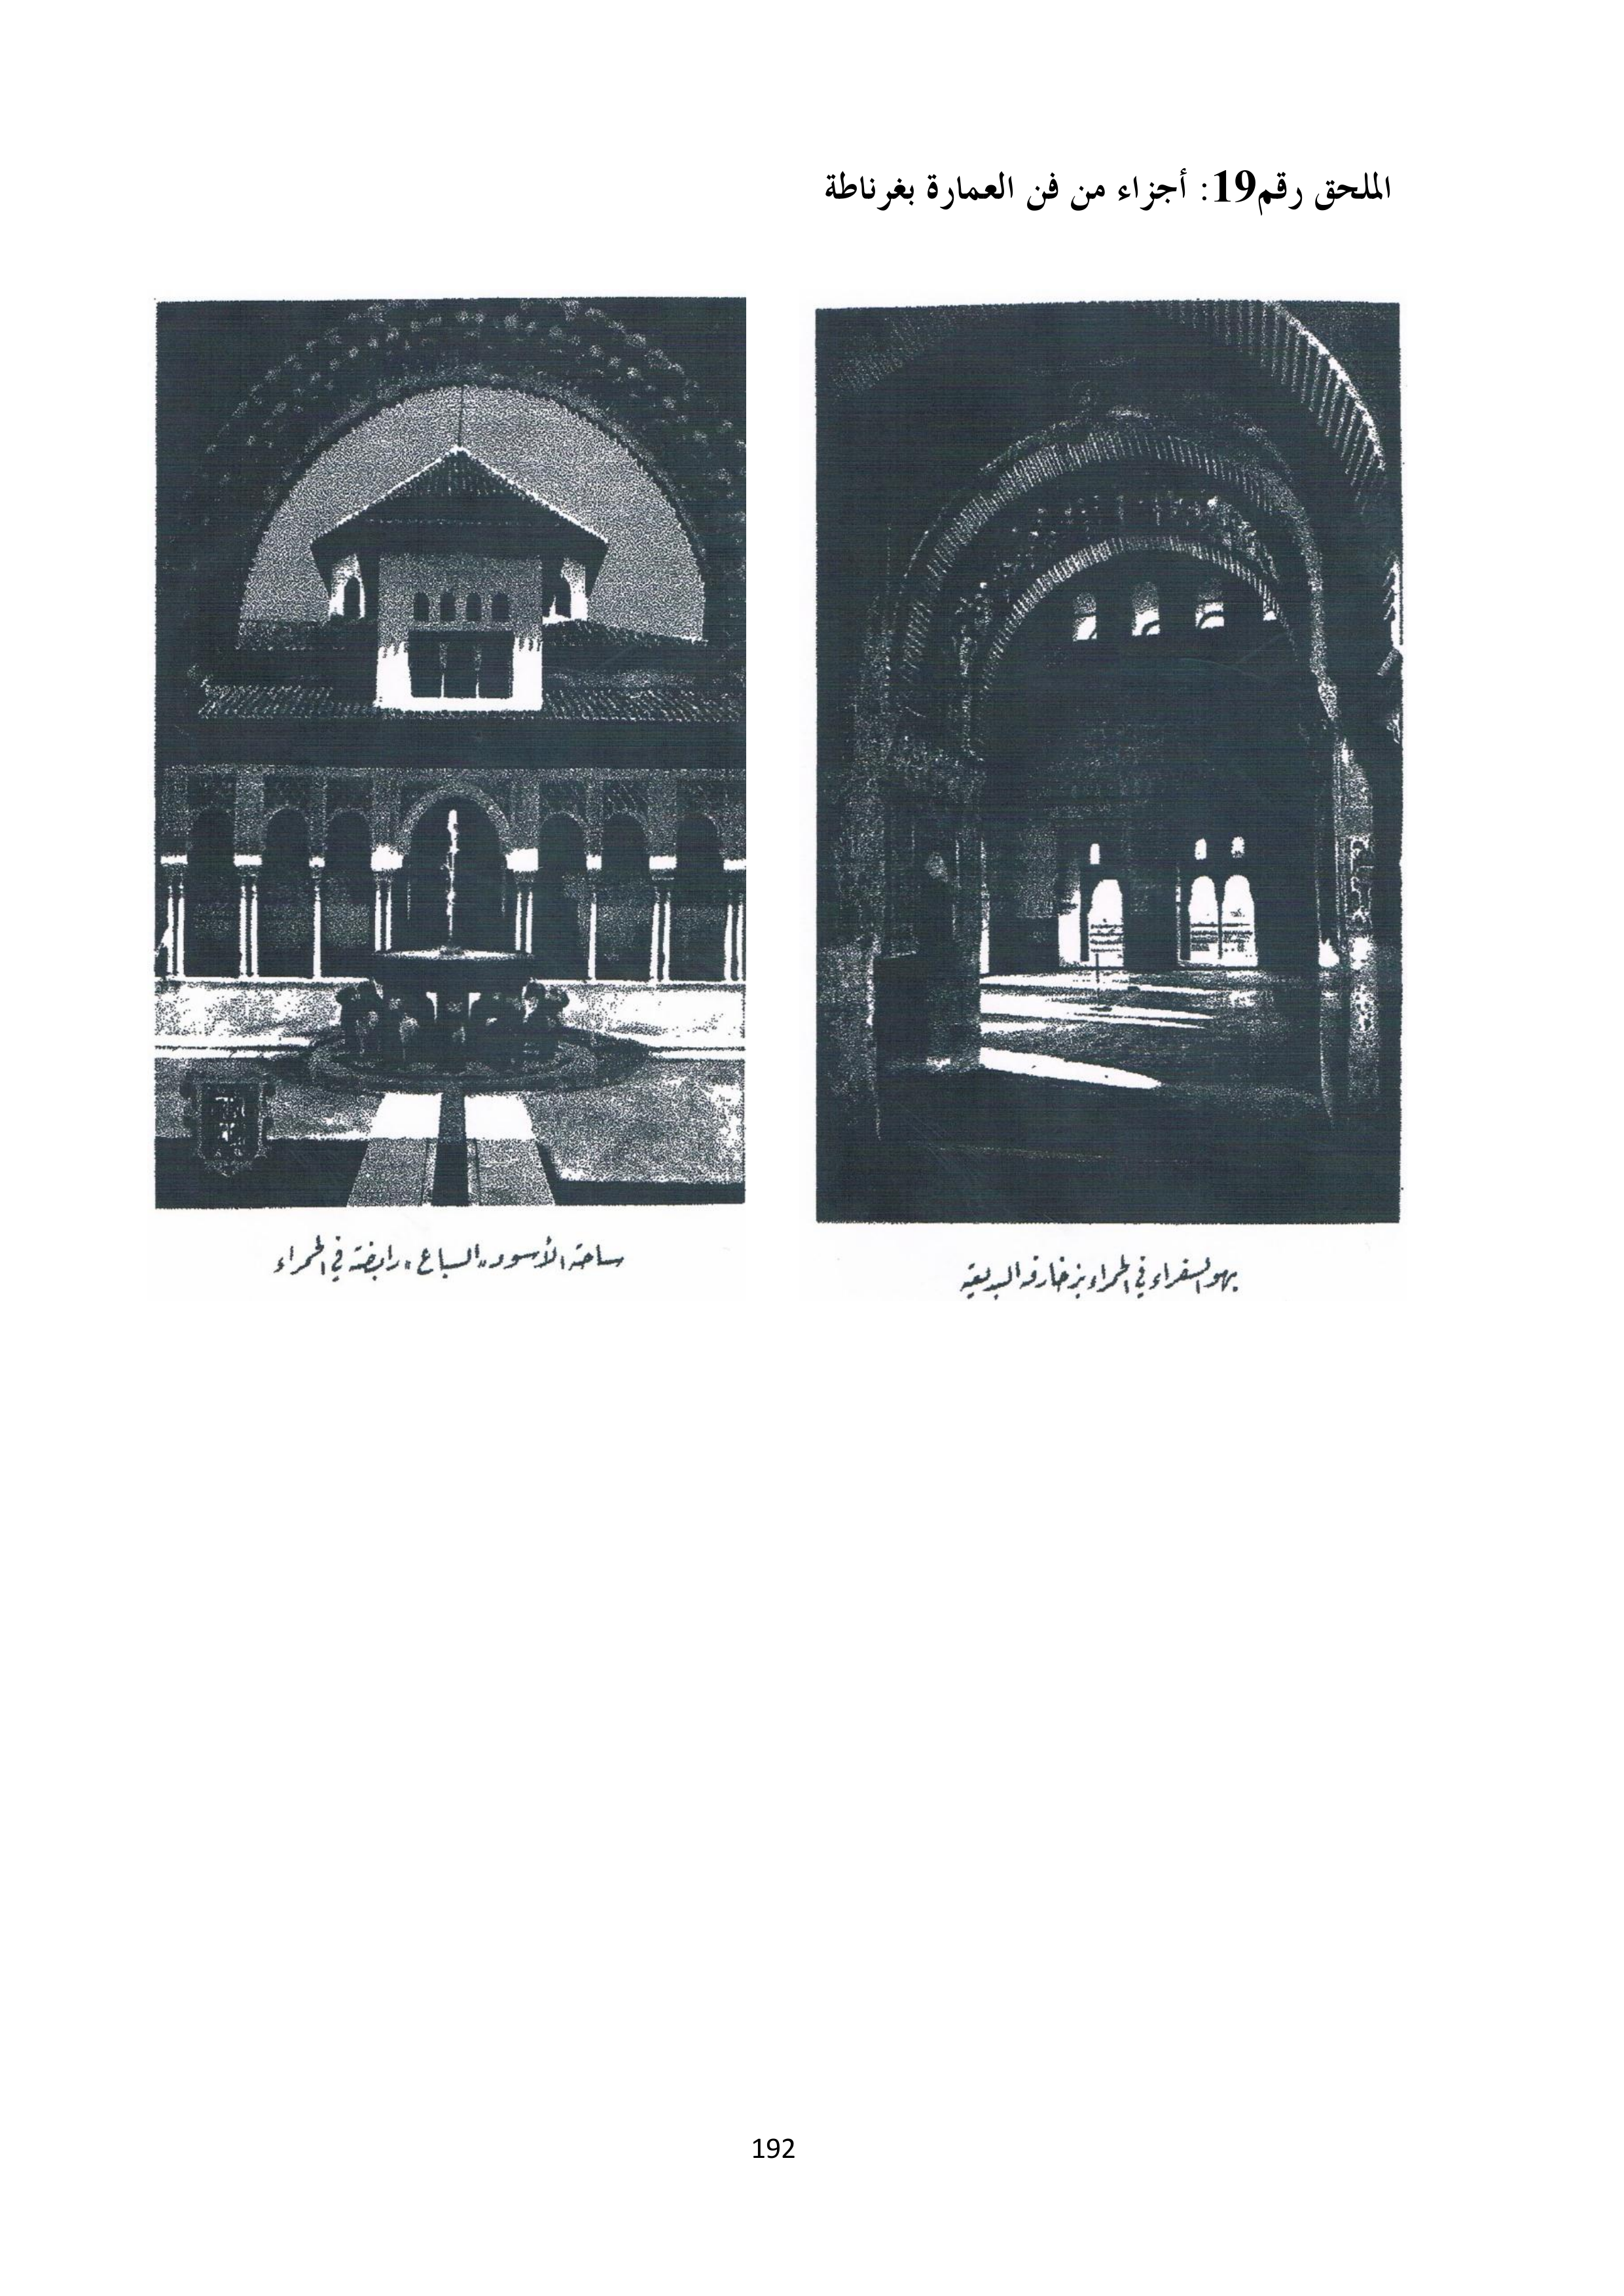 الملحق رقم19: أجزاء من فن العمارة بغرناطة
بهو السفراء في الحمراء بزخارفه البديعة
ساحة الأسود "السباع" رابضة في الحمراء
192